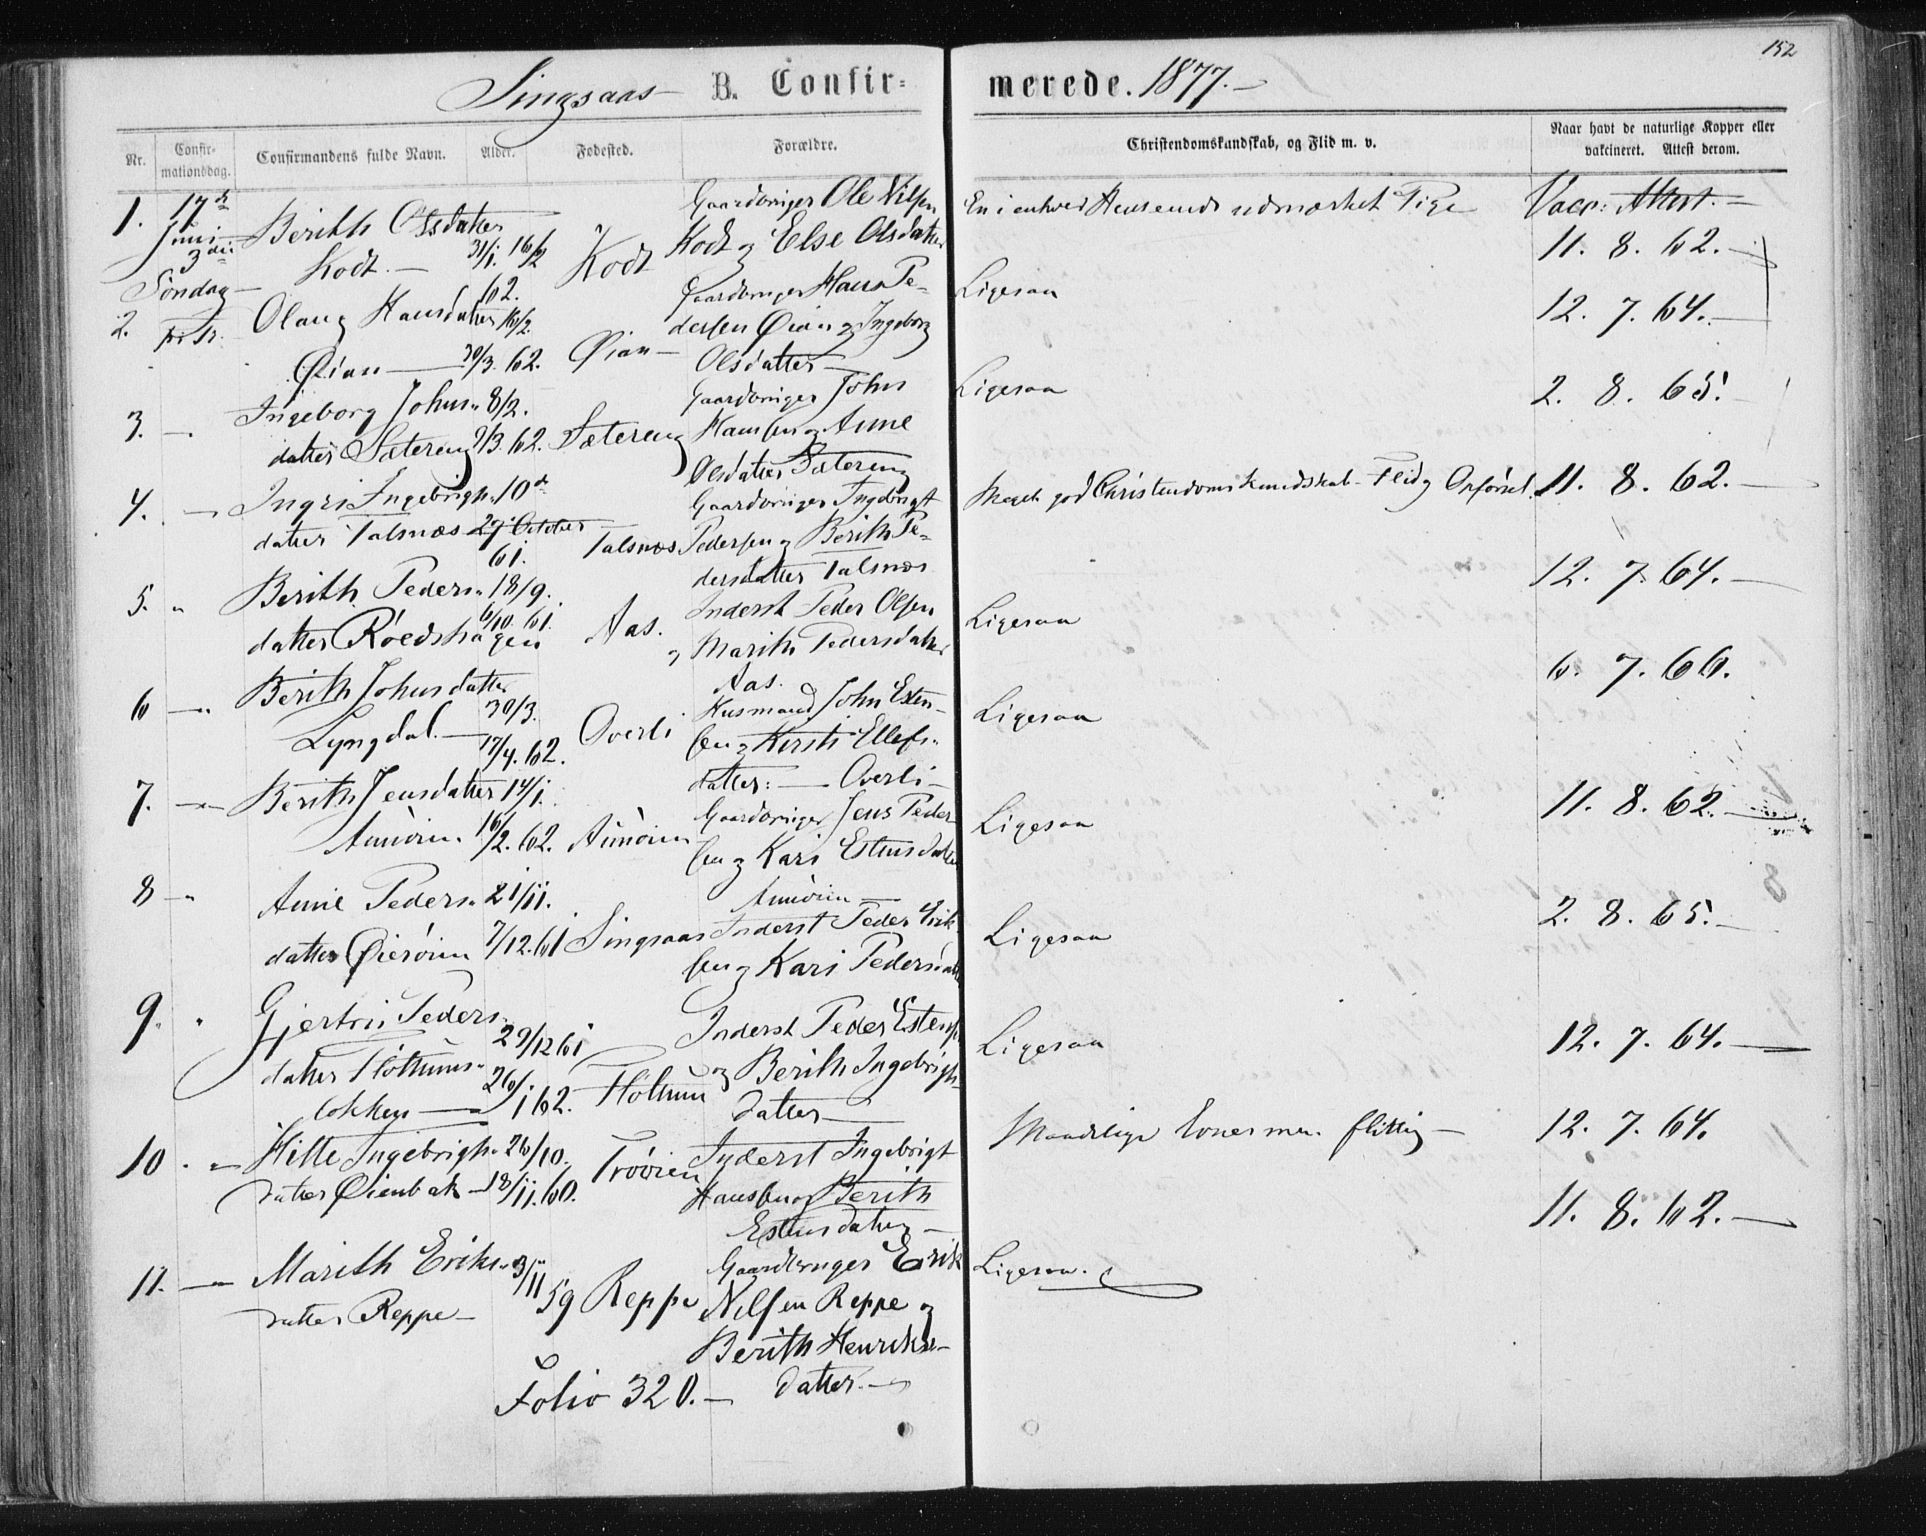 152
Singsaas B. Confir= merede. 1877.
Nr. Confir-mationsdag. Confirmandens fulde Navn. Alder. Fødested. Forældre. Christendomskundskab, og Flid m. v. Naar havt de naturlige Kopper eller vakcineret. Attest derom.
1. 17de Berith Olsdatter Gaardbruger Ole Nilsen En i enhver Henseende udmærket Pige Vacc: Attest.
Juni 3die Kodt. 31/1. 16/2 62. Kodt Kodt og Else Olsdatter 11. 8. 62.
Søndag
2. Olaug Hansdatter 16/2. Gaardbruger Hans Pe- Ligesaa 12. 7. 64.
Øian 30/3. 62. Øian dersen Øian og Ingeborg
Olsdatter
3. Ingeborg Johns- 8/2. Gaardbruger John Ligesaa 2. 8. 65.
datter Sætereng 9/3. 62. Sætereng Hansen og Anne
Olsdatter Sætereng
4. Ingri Ingebrigts- 10de Gaardbruger Ingebrigt Meget god Christendomskundskab Flid og Opførsel 11. 8. 62.
datter Talsnæs 27 October 61. Talsnæs Pedersen og Berith Pe-
dersdatter Talsnæs
5. " Berith Peders- 18/9. Inderst Peder Olsen Ligesaa 12. 7. 64.
datter Røedshagen 6/10. 61. Aas. og Marith Pedersdatter
Aas.
6 Berith Johnsdatter 30/3. Husmand John Esten- Ligesaa 6. 7. 66.
Lyngdal. 17/4. 62. Overli sen og Kirsti Ellefs-
datter: Overli
7. Berith Jensdatter 14/1. Gaardbruger Jens Peder Ligesaa 11. 8. 62.
Aunøien 16/2. 62. Aunøien sen og Kari Estensdatter
Aunøien
8 " Anne Peders- 21/11. Inderst Peder Erik Ligesaa 2. 8. 65.
datter Øierøien 7/12. 61 Singsaas sen og Kari Pedersdatter
9. " Gjertru Peders- 29/12 61 Inderst Peder Estens Ligesaa 12. 7. 64.
datter Flottums- 26/1 62. Flottum og Berith Ingebrigts-
løkken datter
10. " Hilte Ingebrigts- 26/10. Inderst Ingebrigt Maadelige Evner men flittig 12. 7. 64.
datter Øienbak 18/11. 60. Trøøien Hansen og Berith
Estensdatter
11. " Marith Eriks- 3/11 Gaardbruger Erik Ligesaa. 11. 8. 62.
datter Reppe 59 Reppe Nilsen Reppe og
Berith Henriks-
datter.
Folio 320.